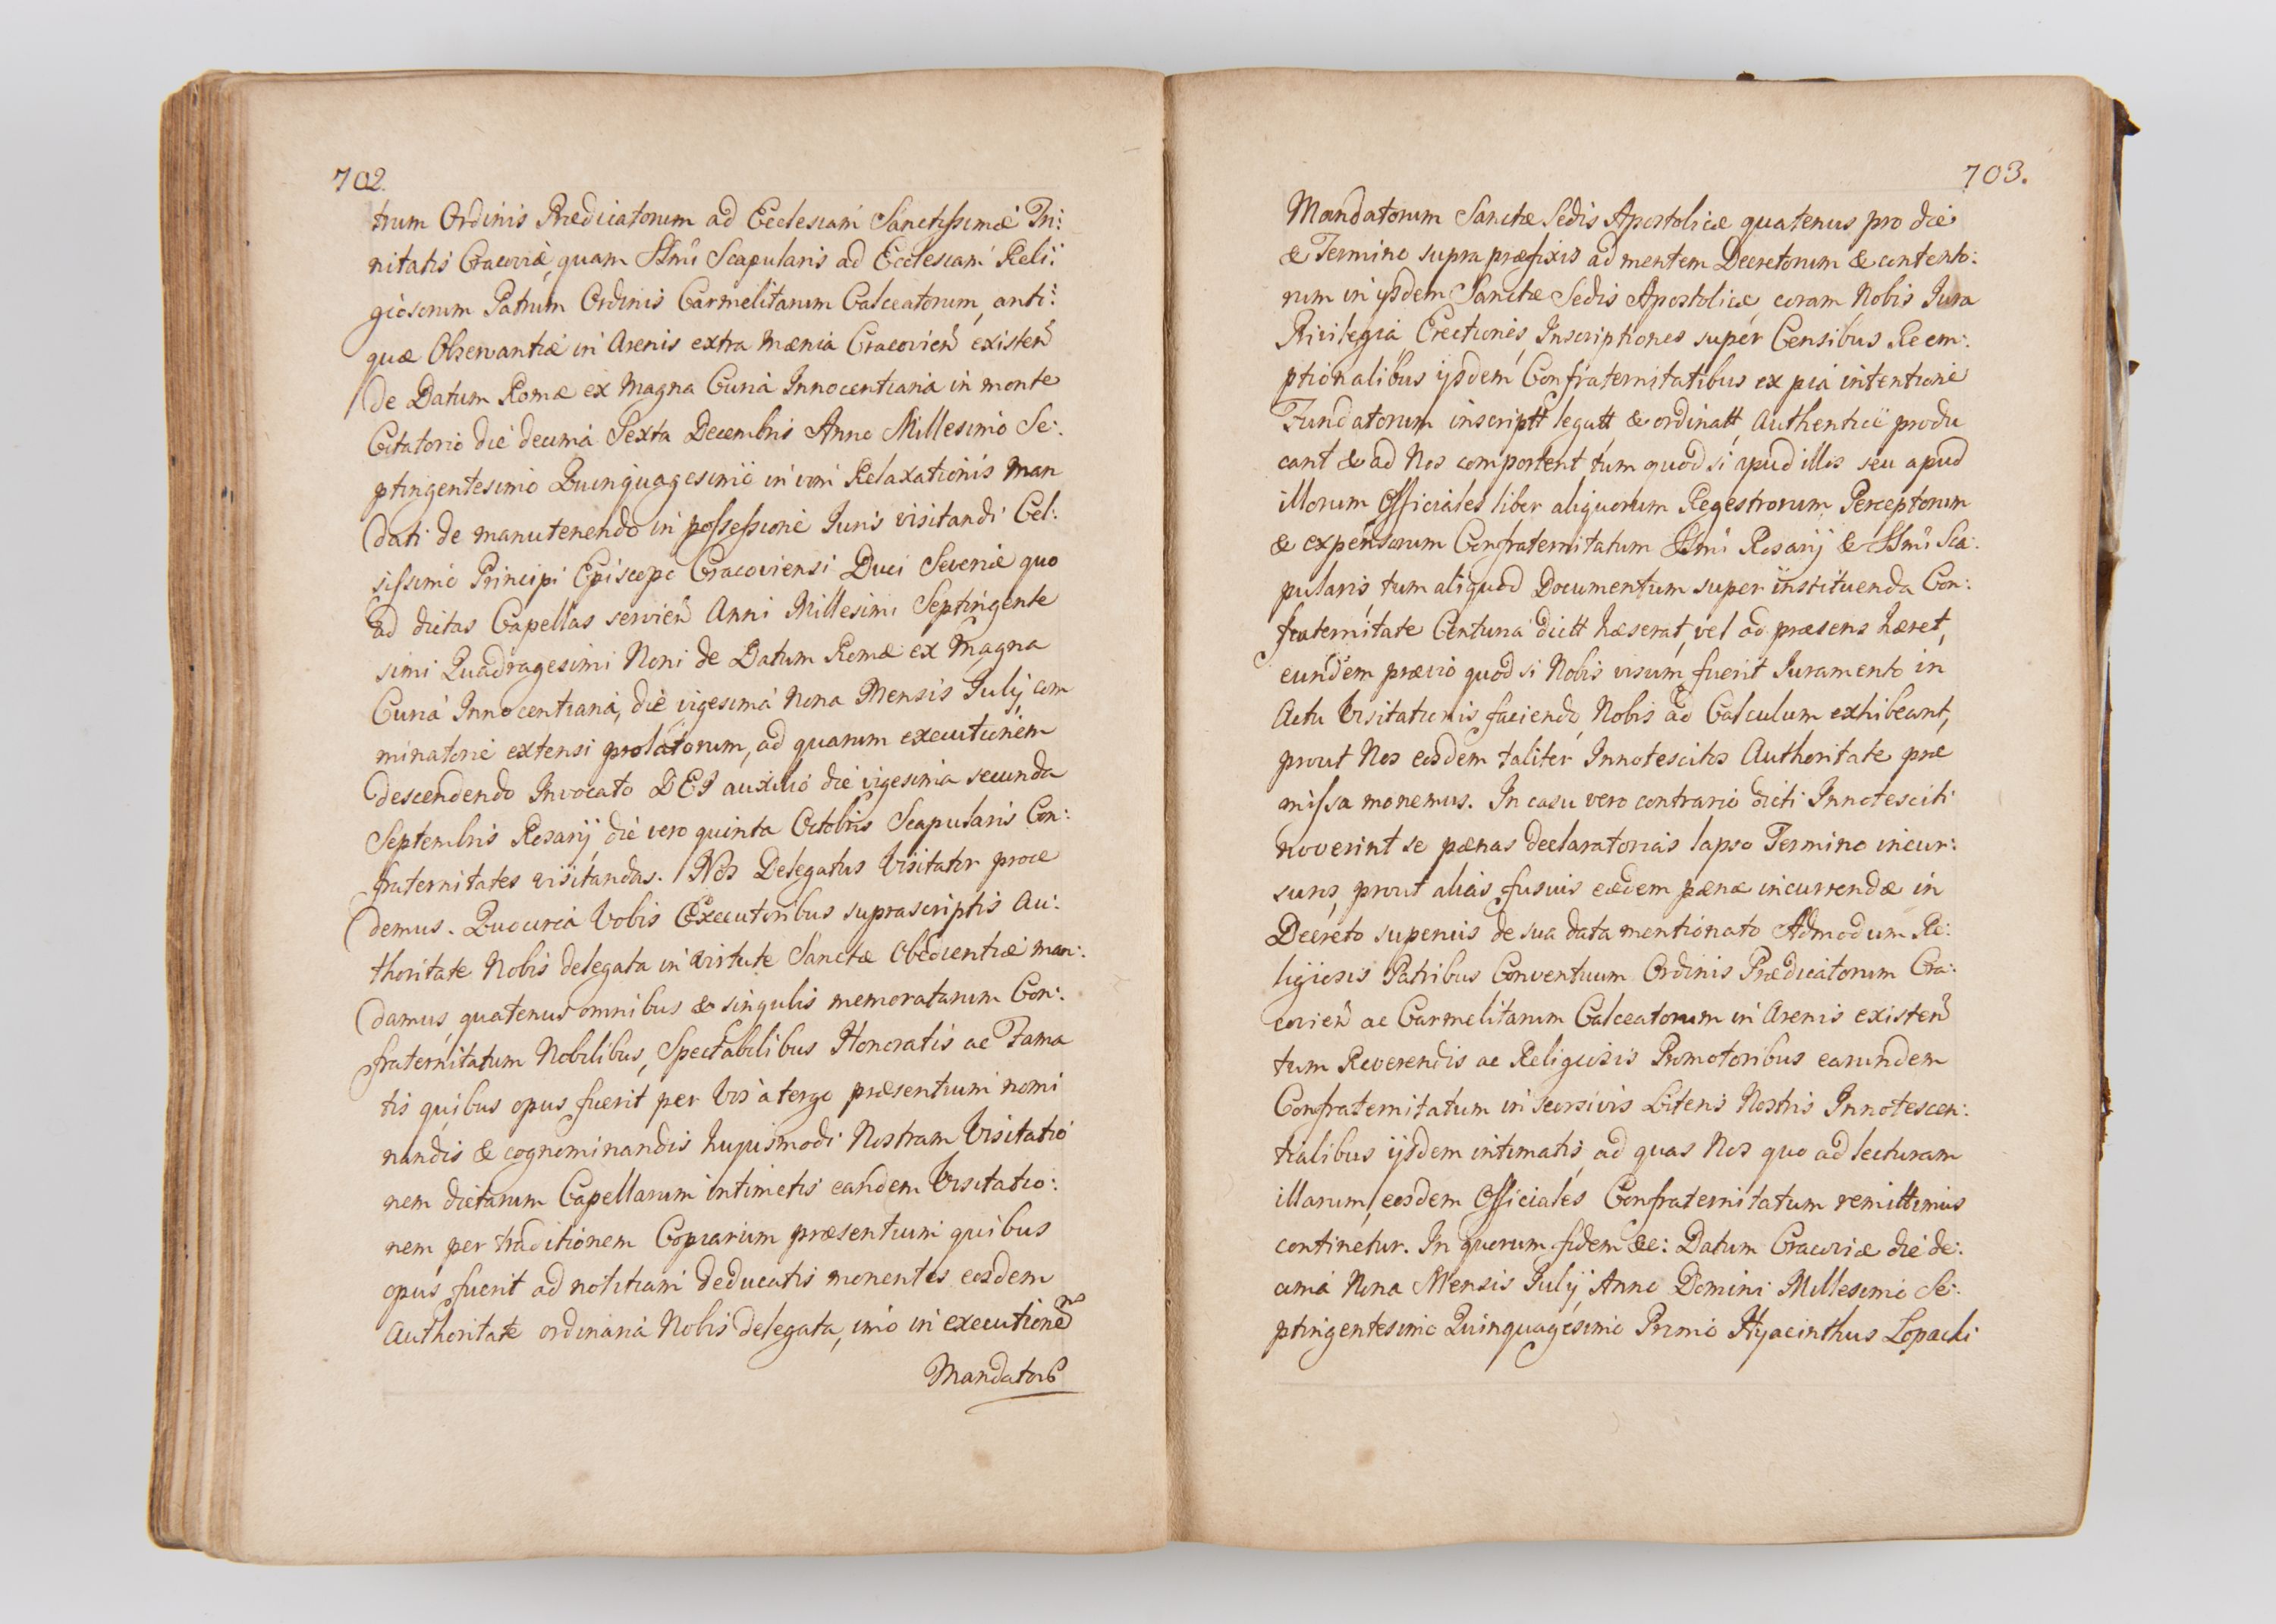 702.
trum Ordinis Prædicatorum ad Ecclesiam Sanctissimæ Tri:
nitatis Cracoviæ, quam SSmi Scapularis ad Ecclesiam Reli:
giosorum Patrum Ordinis Carmelitarum Calceatorum, anti:
quæ Observantiæ in Arenis extra Mænia Cracovien existen
de Datum Romæ ex Magna Curia Innocentiana in monte
Citatorio die decima Sexta Decembris Anno Millesimo Se:
ptingentesimo Quinquagesimo in vim Relaxationis Man
dati de manutenendo in possessione Juris visitandi Cel:
sissimo Principi Episcopo Cracoviensi Duci Severiæ quo
ad dictas Capellas servien Anni Millesimi Septingente
simi Quadragesimi Noni de Datum Romæ ex Magna
Curia Innocentiana, die vigesima Nona Mensis Julij com
minatorie extensi prolatorum, ad quarum executionem
descendendo Invocato DEI auxilio die vigesima secunda
Septembris Rosarij, die vero quinta Octobris Scapularis Con:
fraternitates visitandas. Nos Delegatus Visitator proce
demus. Quocirca Vobis Executoribus suprascriptis Au:
thoritate Nobis delegata in virtute Sanctæ Obedientiæ man:
damus, quatenus omnibus & singulis memoratarum Con:
fraternitatum Nobilibus, Spectabilibus Honoratis ac Fama
tis quibus opus fuerit per Vos à tergo præsentium nomi
nandis & cognominandis hujusmodi Nostram Visitatio
nem dictarum Capellarum intimetis eandem Visitatio:
nem per traditionem Copiarum præsentium quibus
opus fuerit ad notitiam deducatis monentes eosdem
Authoritate ordinaria Nobis delegata, imo in executione
Mandator
703.
Mandatorum Sanctæ Sedis Apostolicæ quatenus pro die
& Termino supra præfixis ad mentem Decretorum & contento:
rum in ijsdem Sanctæ Sedis Apostolicæ, coram Nobis Jura
Privilegia Erectiones, Inscriptiones super Censibus Reem:
ptionalibus ijsdem Confraternitatibus ex pia intentione
Fundatorum inscriptt legatt & ordinatt, Authentice produ
cant & ad Nos comportent, tum quod si apud illos seu apud
illorum Officiales liber aliquorum Regestrorum Perceptorum
& expensarum Confraternitatum SSmi Rosarij & SSmi Sca:
pularis tum aliquod Documentum super instituenda Con:
fraternitate Centuria dictt hæserat, vel ad præsens hæret,
eundem prævio quod si Nobis visum fuerit Juramento in
Actu Visitationis faciendo, Nobis ad Calculum exhibeant,
prout Nos eosdem taliter Innotescitos Authoritate præ
missa monemus. In casu vero contrario dicti Innotesciti
noverint se pænas declaratorias lapso Termino incur:
suros, prout alias fusius eædem pænæ incurrendæ in
Decreto superius de sua data mentionato Admodum Re:
ligiosis Patribus Conventuum Ordinis Prædicatorum Cra:
covien ac Carmelitarum Calceatorum in Arenis existen
tum Reverendis ac Religiosis Promotoribus earundem
Confraternitatum in seorsivis Literis Nostris Innotescen:
tialibus ijsdem intimatis, ad quas Nos quo ad lecturam
illarum, eosdem Officiales Confraternitatum remittimus
continetur. In quorum fidem &c: Datum Cracoviæ die de:
cima Nona Mensis Julij, Anno Domini Millesimo Se:
ptingentesimo Quinquagesimo Primo Hyacinthus Lopacki